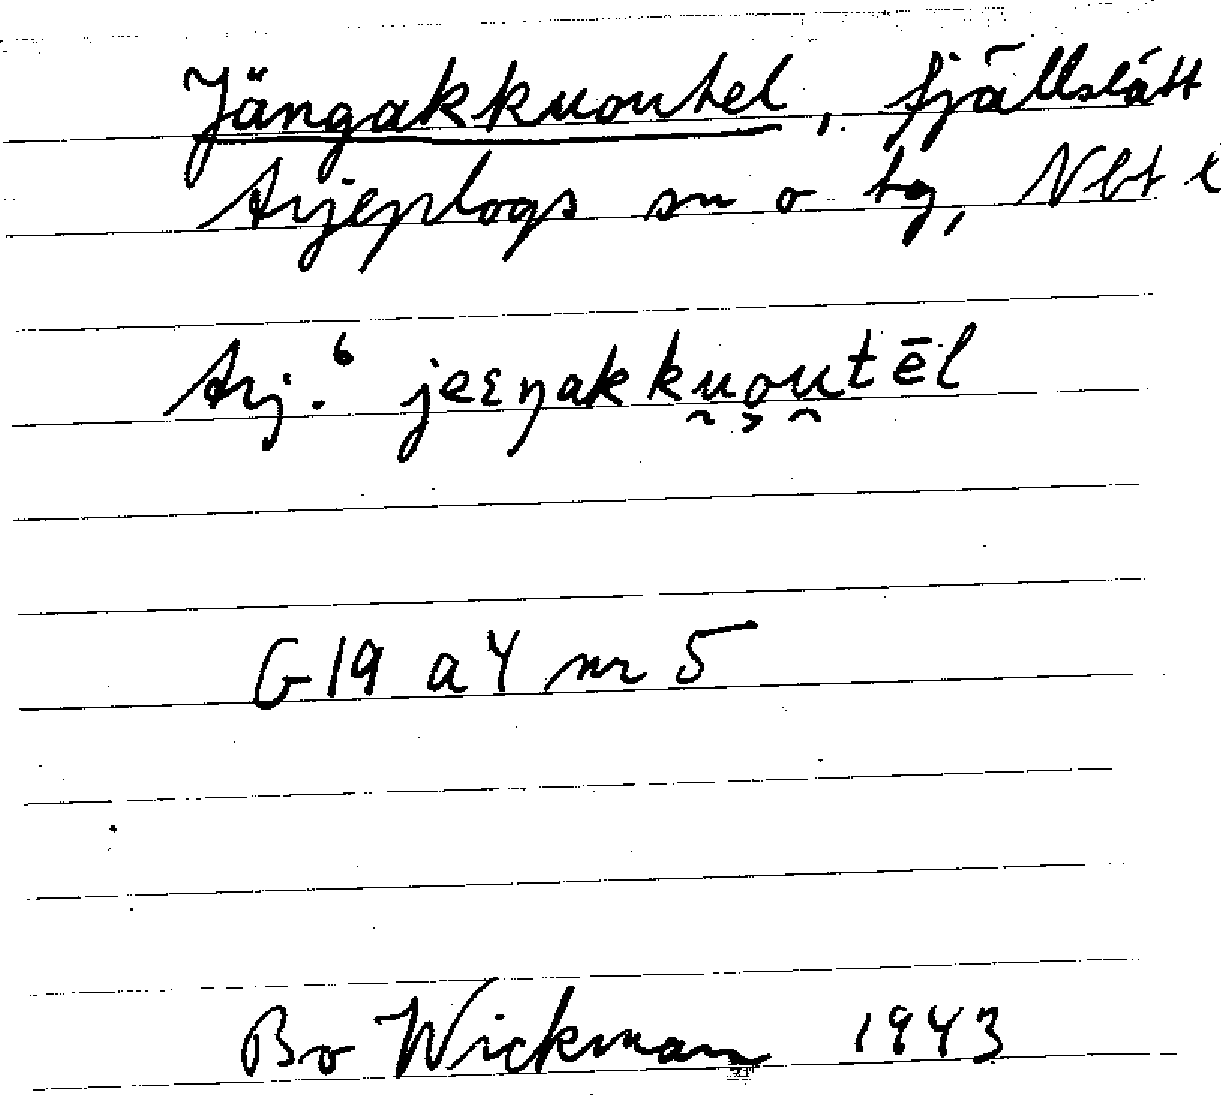 Jängakkuoutel, fjällslått
Arjeplogs sn o tg, Nbt l
Arj.⁶ jeεŋakku̯o̭u̯tēl
G 19 a 4 nr 5
Bo Wickman 1943